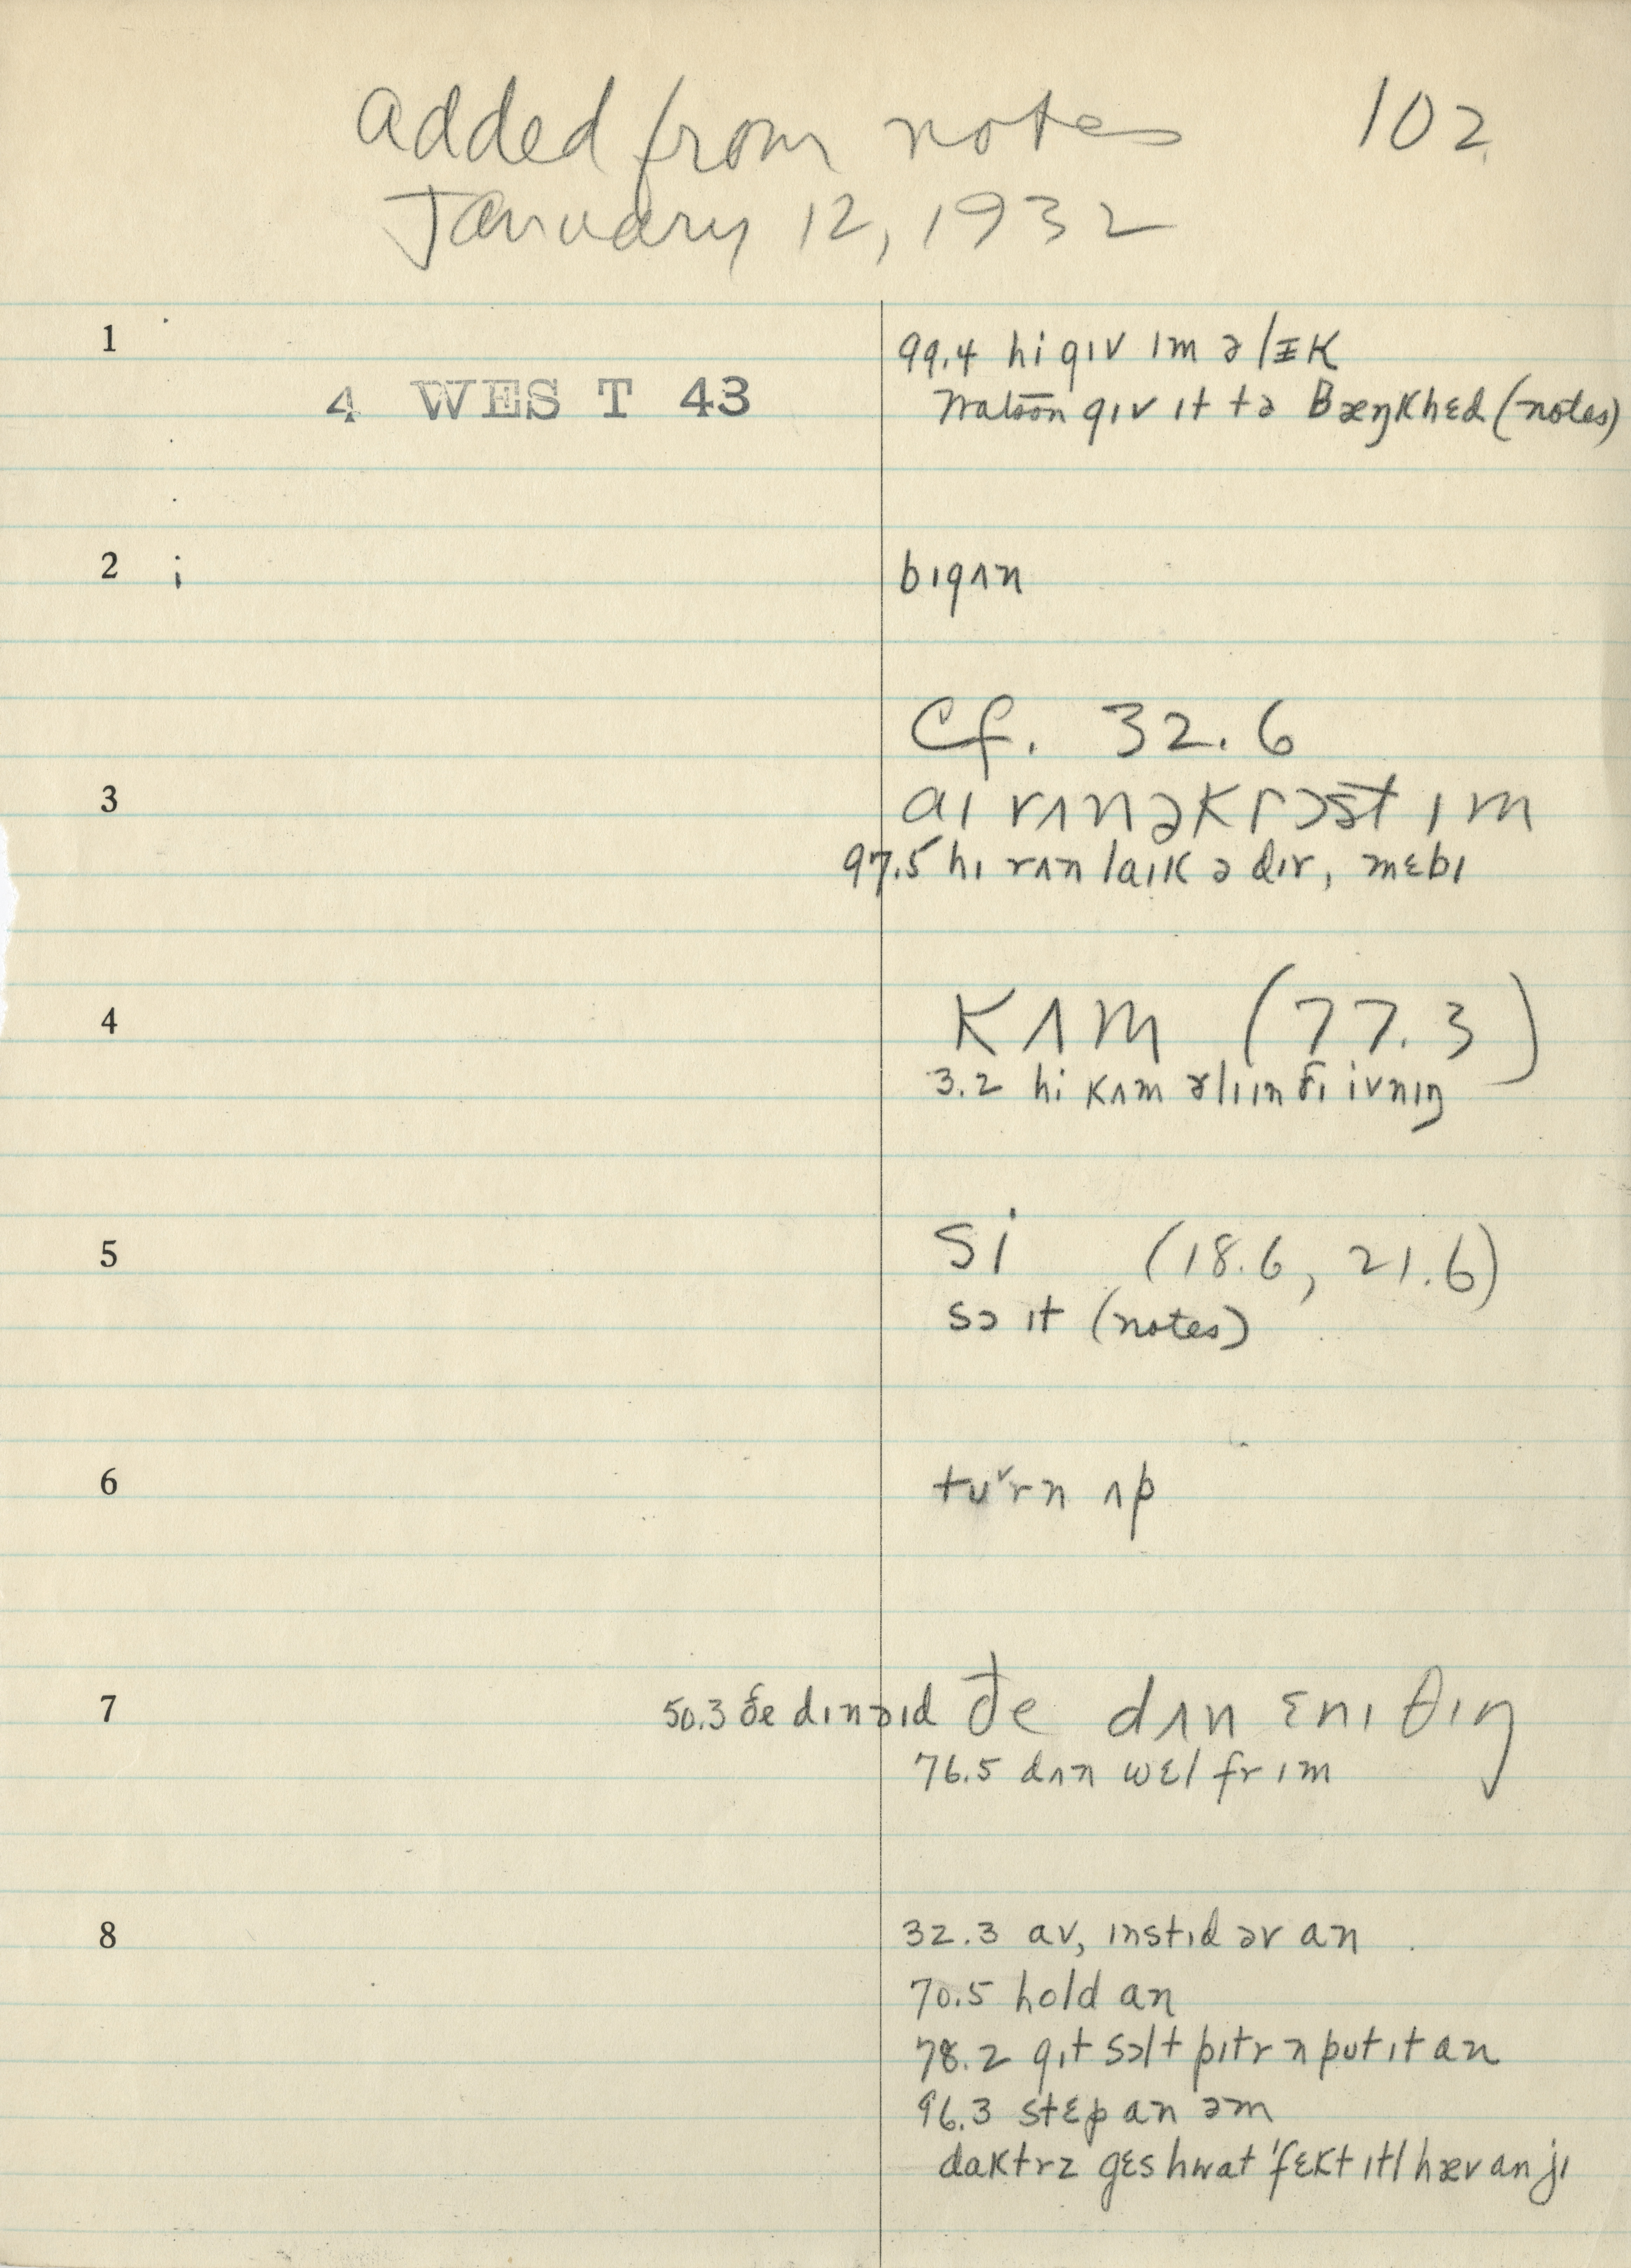 added from notes 102
January 12, 1932
1 99.4 hi gɪv ɪm ə lɪk
4 WEST 43
gɪv ɪt tə Bæŋkhɛd (notes)
2 bɪgʌn
Cf. 32.6
3 aɪ rʌn əkrɔst ɪm
97.5 hɪ rʌn laɪk ə dɪr, mɛbɪ
4 kʌm (77.3)
3.2 hi kʌm ɪn ðɪ ivnɪŋ
5 si (18.6, 21.6)
sɔ it (notes)
6 ʌp
7 50.3 ðe dɪnəɪd ðe dʌn ɛnɪ θɪŋ
76.5 dʌn wɛl fr ɪm
8 32.3 av, ɪnstɪd əv an
70.5 hold an
78.2 gɪt sɔlt pitr n put ɪt an
96.3 stɛp an əm
daktrz gɛs hwat 'fɛkt ɪtl hæv an jɪ